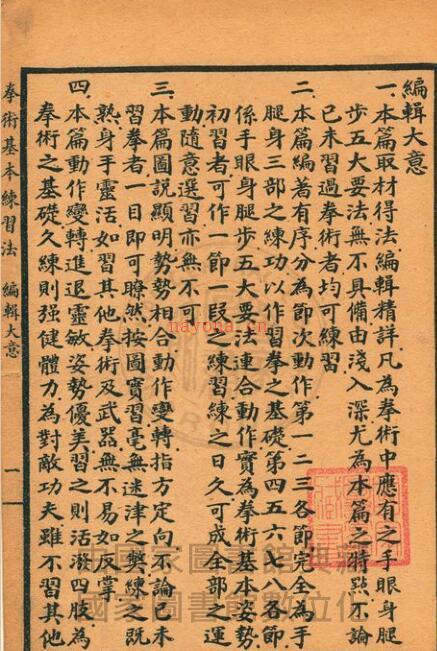 編輯大意
一.本篇取材得法編輯精詳凡為拳術中應有之手眼身腿
步五大要法無不具備由淺入深尤為本篇之特點不論
已未習過拳術者均可練習
二.本篇編著有序分為節次動作第一二三各節完全為手
腿身三部之練功以作習拳之基礎第四五六七八各節
係手眼身腿步五大要法連合動作實為拳術基本姿勢
初習者可作一節一段之練習練之日久可成全部之運
動隨意選習亦無不可
三.本篇圖說顯明勢勢相合動作變轉指方定向不論已未
習拳者一目即可瞭然按圖實習毫無迷津之獘練之既
熟身手靈活如習其他拳術及武器無不易如反掌
四.本篇動作變轉進退靈敏姿勢優美習之則活潑四肢為
拳術之基礎久練則强健體力為對敵功夫雖不習其他
拳術基本練習法 編輯大意 一
nayona.cn
國家圖書館典藏
國家圖書館數位化